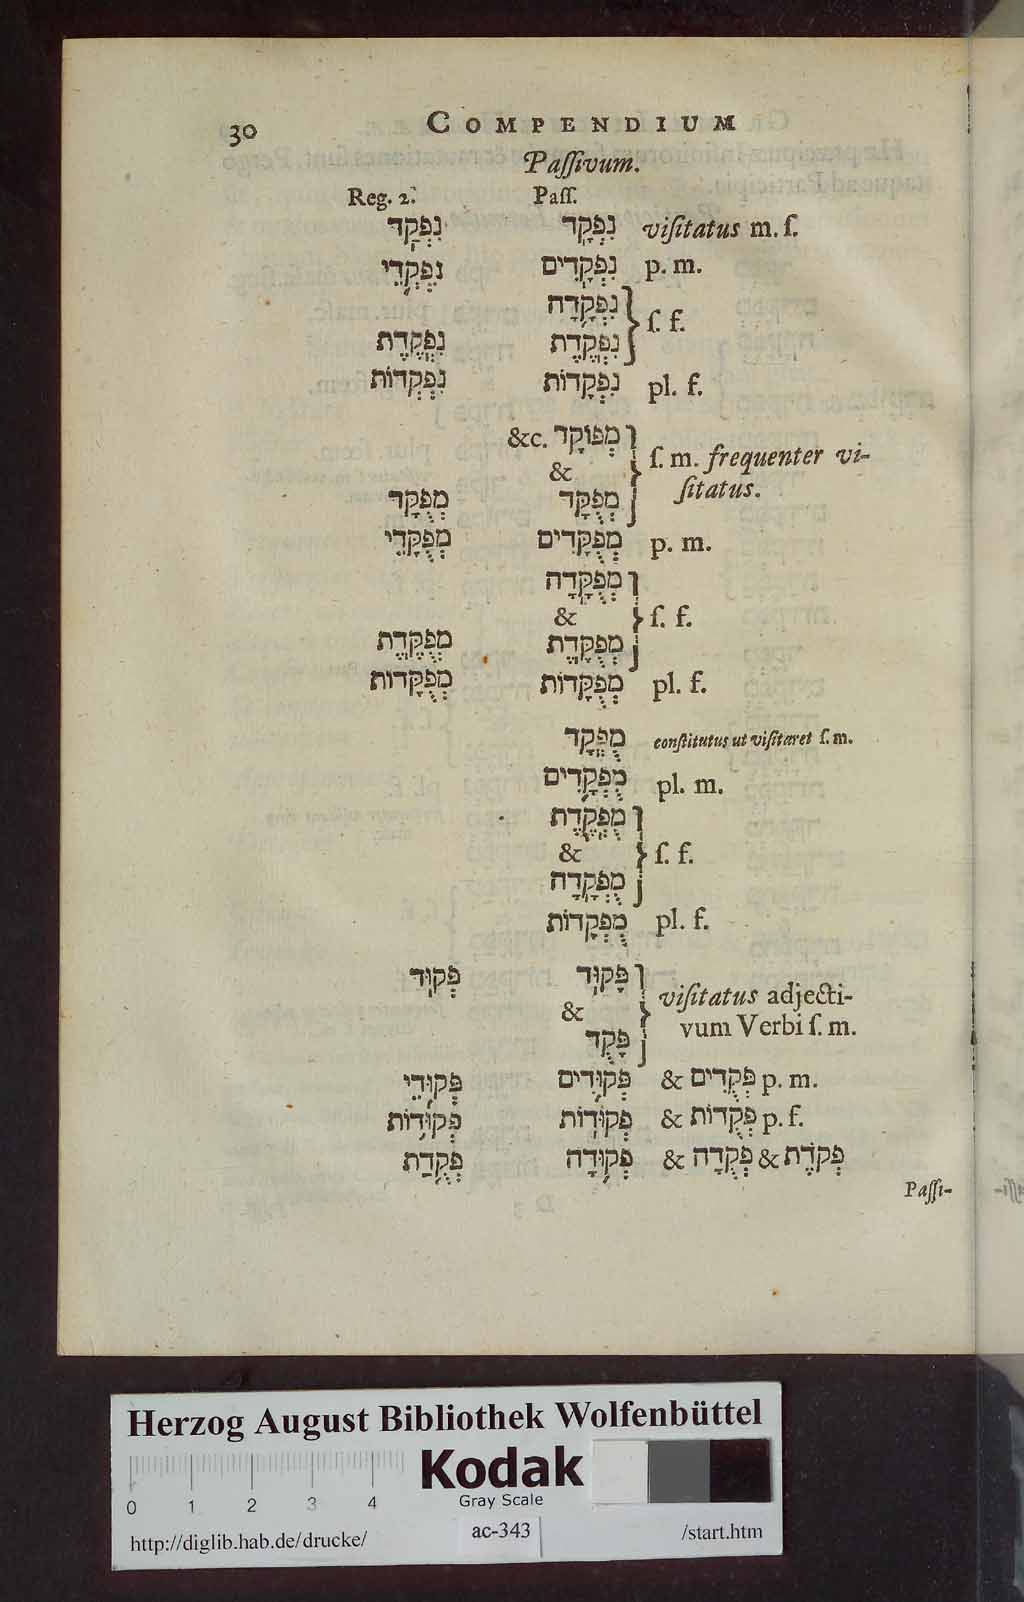 30 COMPENDIUM
Paſſivum.
Reg. 2. Paſſ.
נִפְקַד נִפְקָד viſitatus m. ſ.
נִפְקְדֵי נִפְקָדִים p. m.
נִפְקָדָה
ſ. f.
נִפְקֶדֶת נִפְקֶדֶת
נִפְקְדוֹת נִפְקָדוֹת pl. f.
&c. מְפוּקָד
ſ. m. frequenter vi-
&
ſitatus.
מְפֻקָּד מְפֻקָּד
מְפֻקָּדֵי מְפֻקָּדִים p. m.
מְפֻקָּדָה
& ſ. f.
מְפֻקֶּדֶת מְפֻקֶּדֶת
מְפֻקָּדוֹת מְפֻקָּדוֹת pl. f.
מֻפְקָד conſtitutus ut viſitaret ſ. m.
מֻפְקָדִים pl. m.
מֻפְקֶדֶת
& ſ. f.
מֻפְקָדָה
מֻפְקָדוֹת pl. f.
פְּקוּד פָּקוּד
viſitatus adjecti-
&
vum Verbi ſ. m.
פָּקֻד
פְּקוּדֵי פְּקוּדִים & פְּקֻדִים p. m.
פְּקוּדוֹת פְּקוּדוֹת & פְּקֻדוֹת p. f.
פְּקֻדַת פְּקוּדָה & פְּקֻדָה & פְּקֹדֶת
Paſſi-
Herzog August Bibliothek Wolfenbüttel
Kodak
Gray Scale
0 1 2 3 4
http://diglib.hab.de/drucke/ ac-343 /start.htm